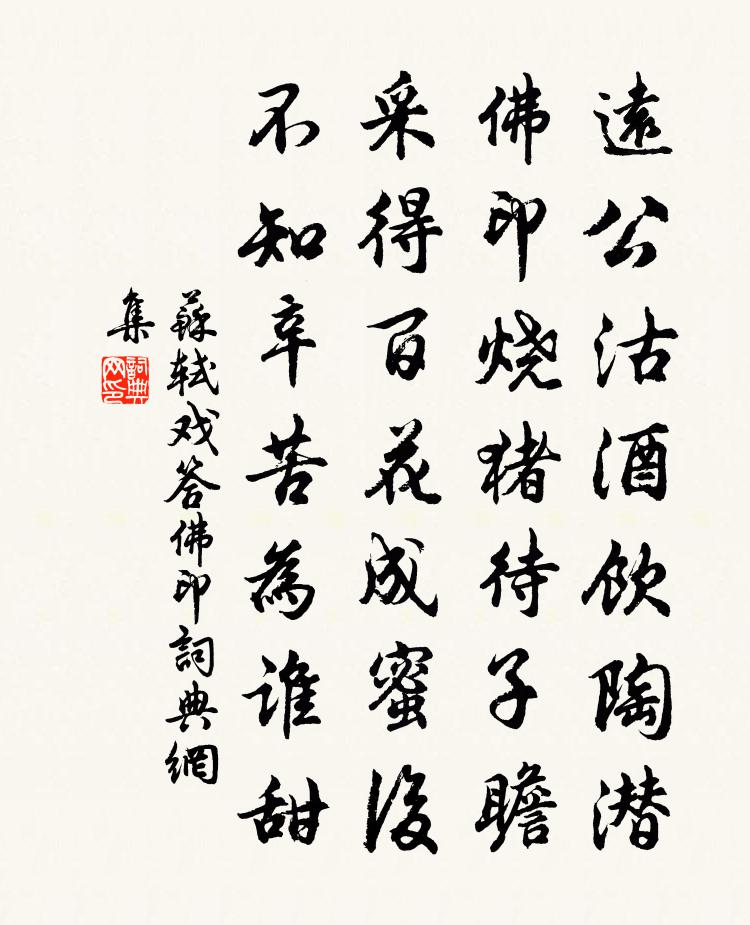 遠公沽酒飲陶潜
佛印烧猪待子瞻
采得百花成蜜後
不知辛苦為谁甜
蘇轼戏答佛印詞典網
集
詞典
网印